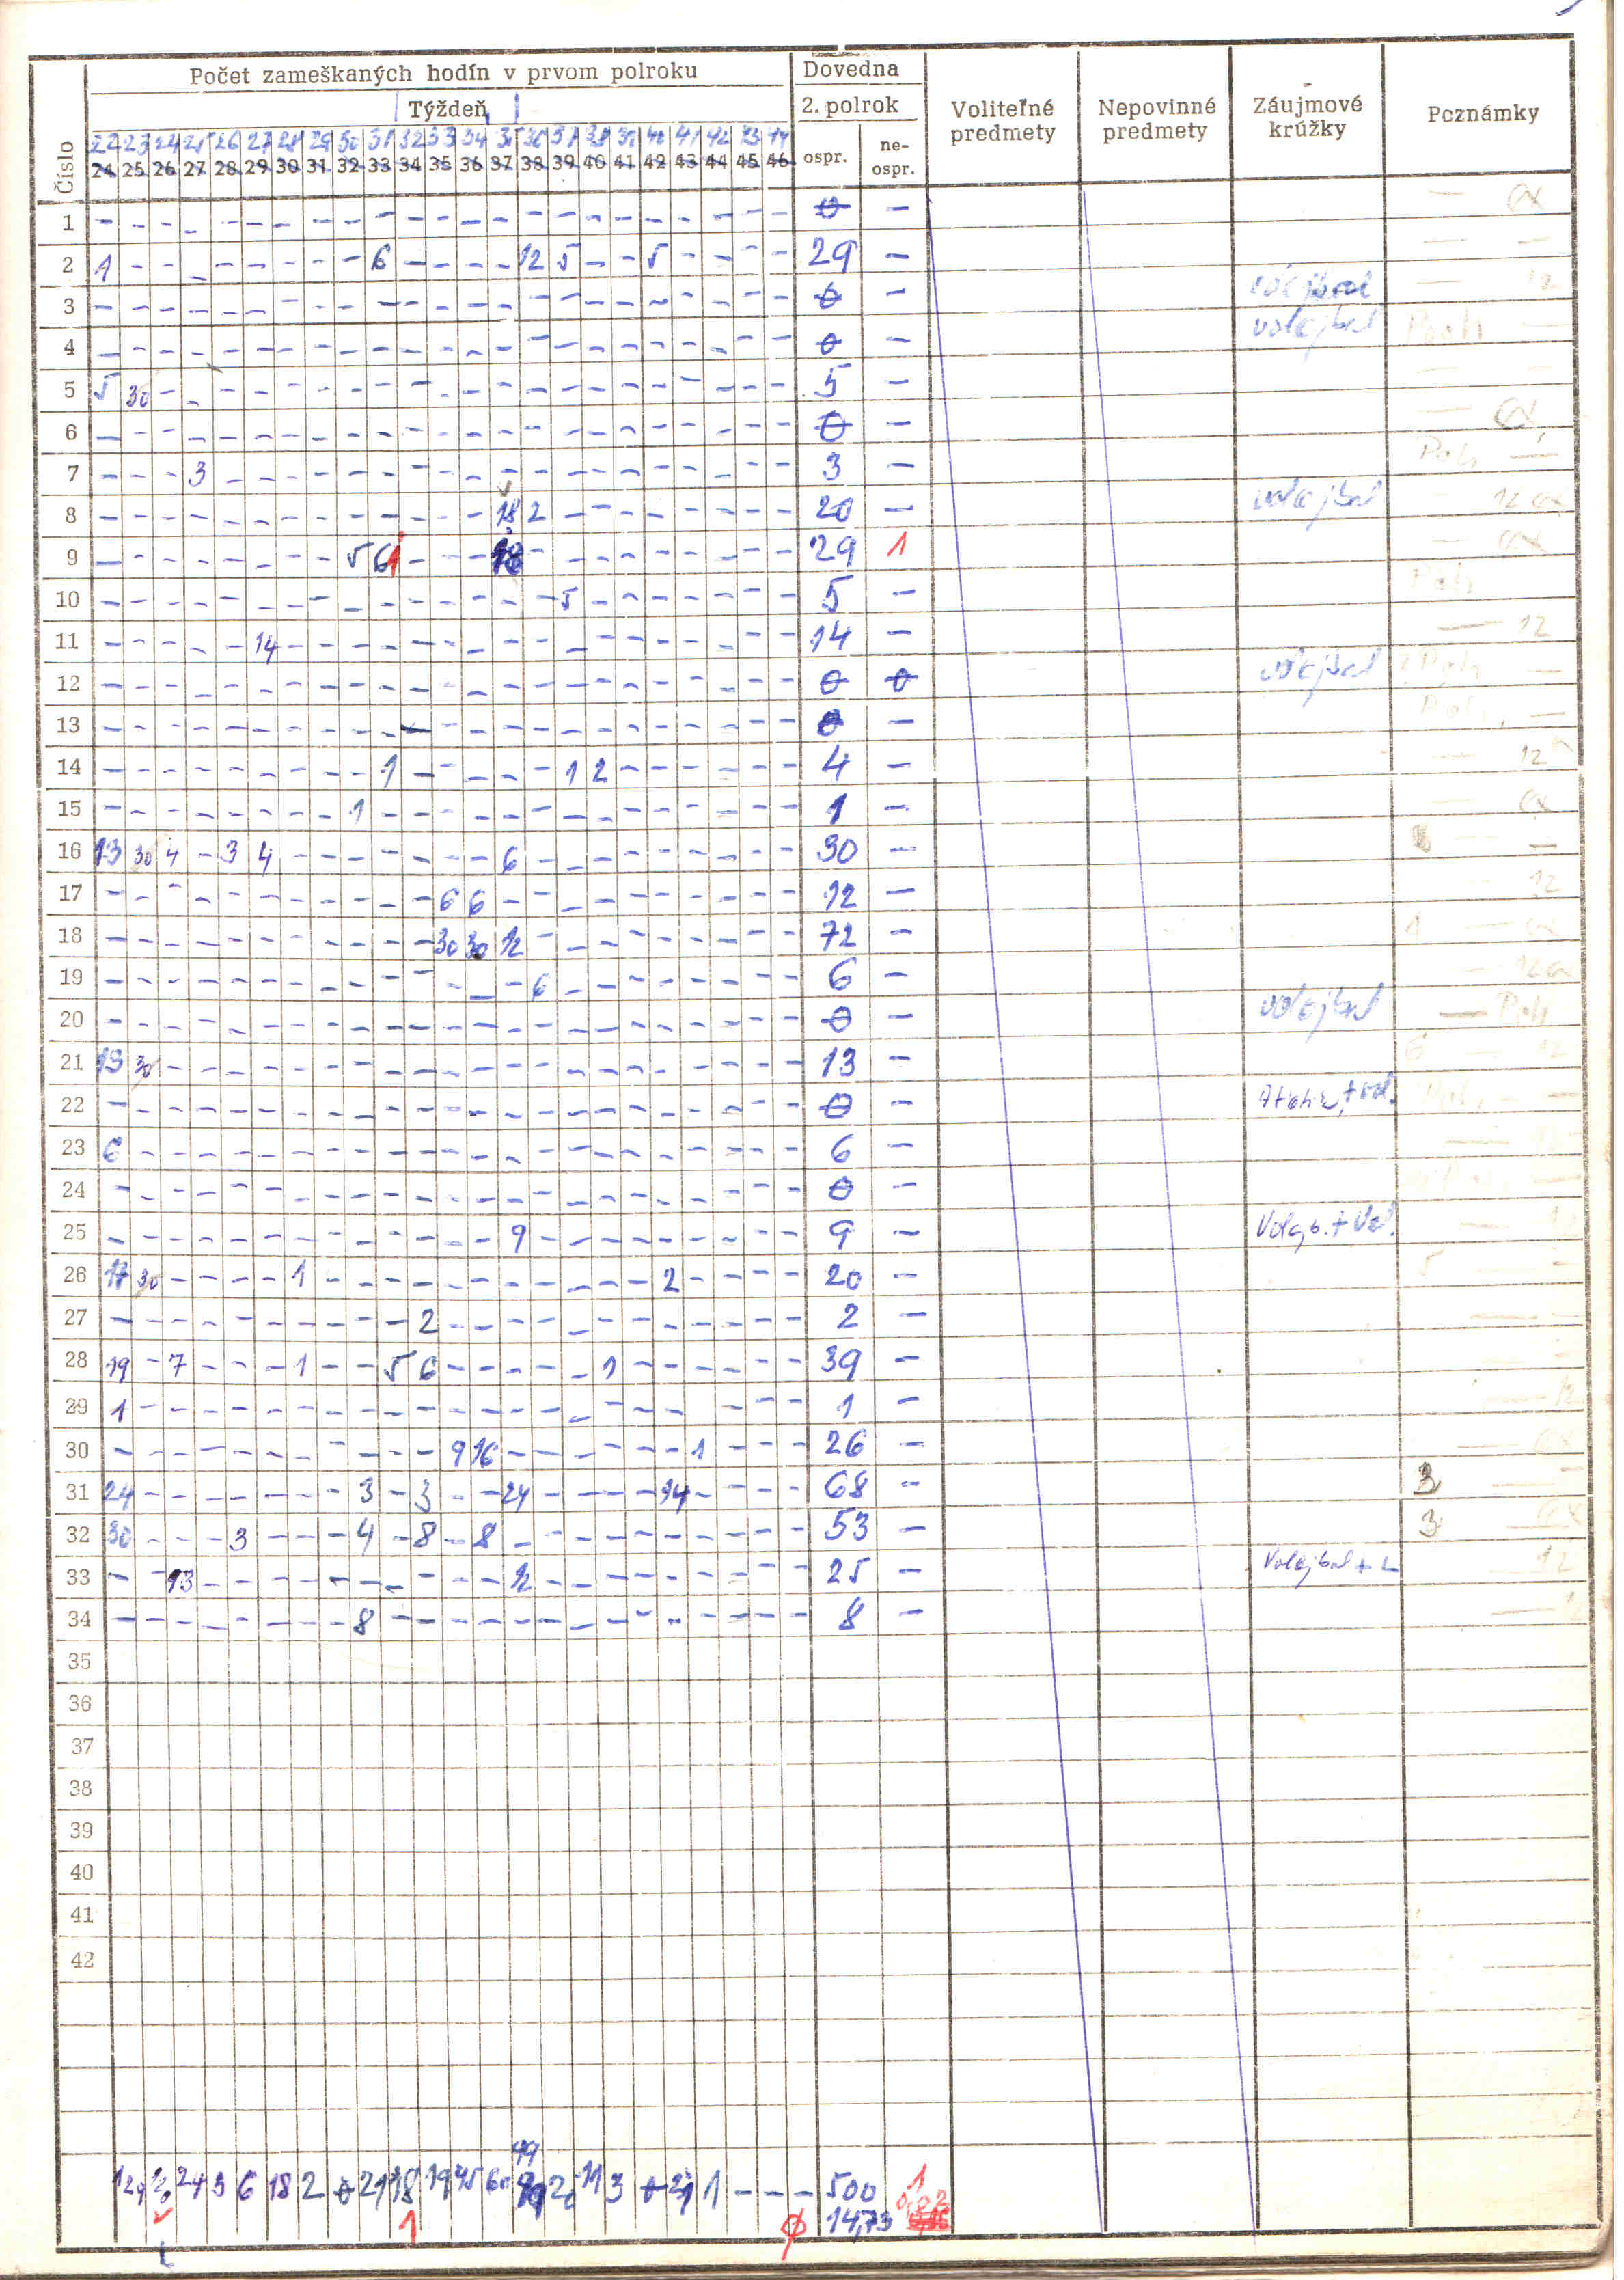 Počet zameškaných hodín v prvom polroku
Dovedna
Týždeň
2. polrok
Voliteľné predmety
Nepovinné predmety
Záujmové krúžky
Poznámky
Číslo
22 23 24 25 26 27 28 29 30 31 32 33 34 35 36 37 38 39 40 41 42 43 44
24 25 26 27 28 29 30 31 32 33 34 35 36 37 38 39 40 41 42 43 44 45 46
ospr.
ne-ospr.
1 - - - - - - - - - - - - - - - - - - - - - - - 0 -
2 1 - - - - - - - - 6 - - - - 12 5 - - 5 - - - - 29 -
3 - - - - - - - - - - - - - - - - - - - - - - - 0 - volejbal
4 - - - - - - - - - - - - - - - - - - - - - - - 0 - volejbal
5 5 30 - - - - - - - - - - - - - - - - - - - - - 5 -
6 - - - - - - - - - - - - - - - - - - - - - - - 0 -
7 - - - 3 - - - - - - - - - - - - - - - - - - - 3 -
8 - - - - - - - - - - - - - 18 2 - - - - - - - - 20 - volejbal
9 - - - - - - - - 5 6 1 - - - 18 - - - - - - - - - 29 1
10 - - - - - - - - - - - - - - - 5 - - - - - - - 5 -
11 - - - - - 14 - - - - - - - - - - - - - - - - - 14 -
12 - - - - - - - - - - - - - - - - - - - - - - - 0 0 volejbal
13 - - - - - - - - - - - - - - - - - - - - - - - 0 -
14 - - - - - - - - - 1 - - - - - 1 2 - - - - - - 4 -
15 - - - - - - - - 1 - - - - - - - - - - - - - - 1 -
16 13 30 4 - 3 4 - - - - - - - 6 - - - - - - - - - 30 -
17 - - - - - - - - - - - 6 6 - - - - - - - - - - 12 -
18 - - - - - - - - - - - 30 30 12 - - - - - - - - - 72 -
19 - - - - - - - - - - - - - - 6 - - - - - - - - 6 -
20 - - - - - - - - - - - - - - - - - - - - - - - 0 - volejbal
21 13 30 - - - - - - - - - - - - - - - - - - - - - 13 -
22 - - - - - - - - - - - - - - - - - - - - - - - 0 -
23 6 - - - - - - - - - - - - - - - - - - - - - - 6 -
24 - - - - - - - - - - - - - - - - - - - - - - - 0 -
25 - - - - - - - - - - - - - 9 - - - - - - - - - 9 -
26 17 30 - - - - 1 - - - - - - - - - - - 2 - - - - 20 -
27 - - - - - - - - - - 2 - - - - - - - - - - - - 2 -
28 19 - 7 - - - 1 - - 5 6 - - - - - 1 - - - - - - 39 -
29 1 - - - - - - - - - - - - - - - - - - - - - - 1 -
30 - - - - - - - - - - - 9 16 - - - - - - 1 - - - 26 -
31 24 - - - - - - - 3 - 3 - - 24 - - - - 14 - - - - 68 - 3
32 30 - - - 3 - - - 4 - 8 - 8 - - - - - - - - - - 53 - 3
33 - - 13 - - - - - - - - - - 12 - - - - - - - - - 25 -
34 - - - - - - - - 8 - - - - - - - - - - - - - - 8 -
35
36
37
38
39
40
41
42
129 24 3 6 18 2 0 21 18 19 45 60 20 11 3 0 21 1 - - - 500 1
1 14,73